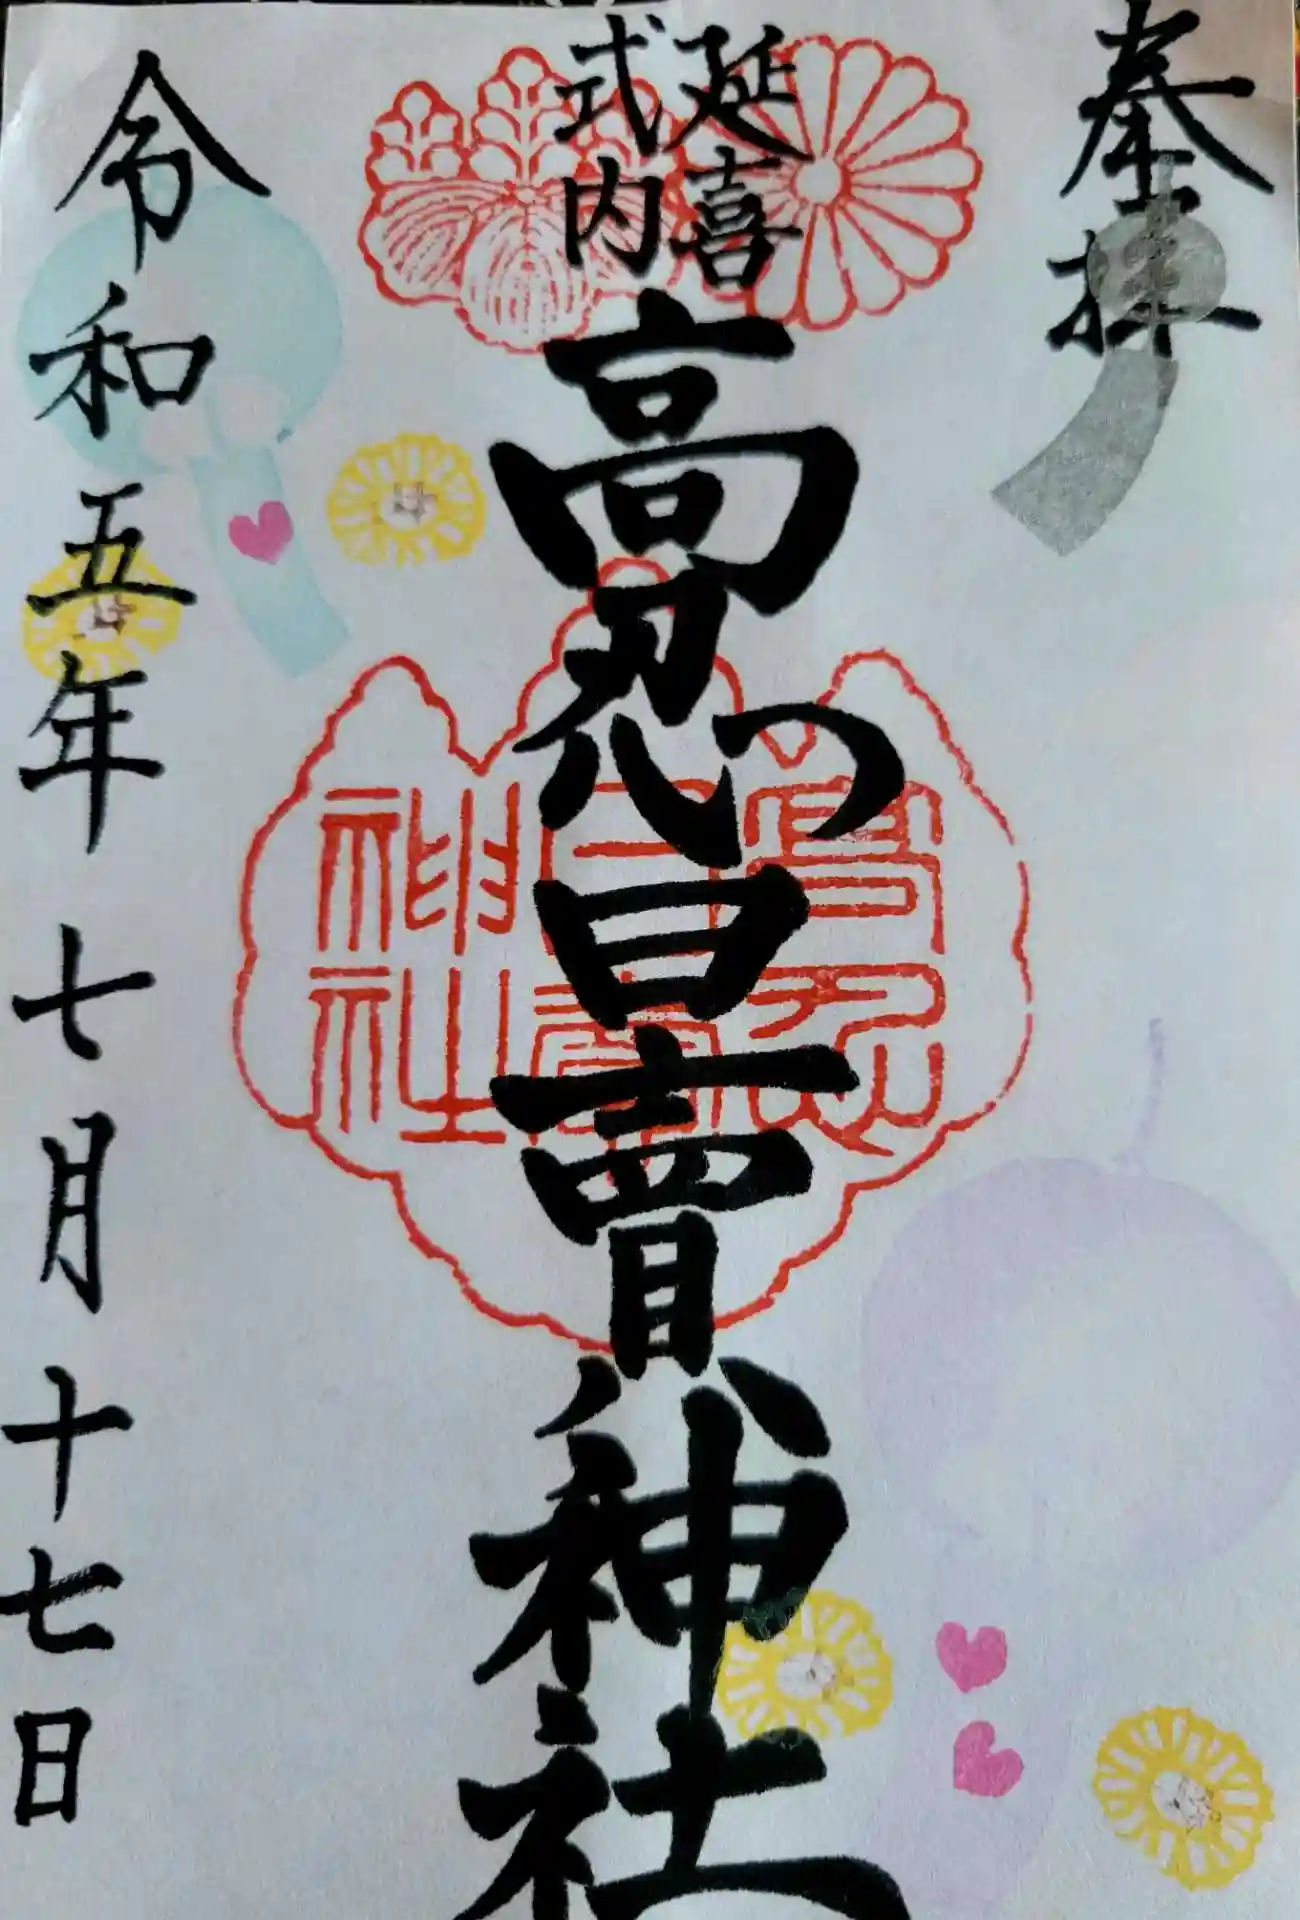 奉拝
延喜
式内
高忍日賣神社
高忍
日賣
神社
令和五年七月十七日